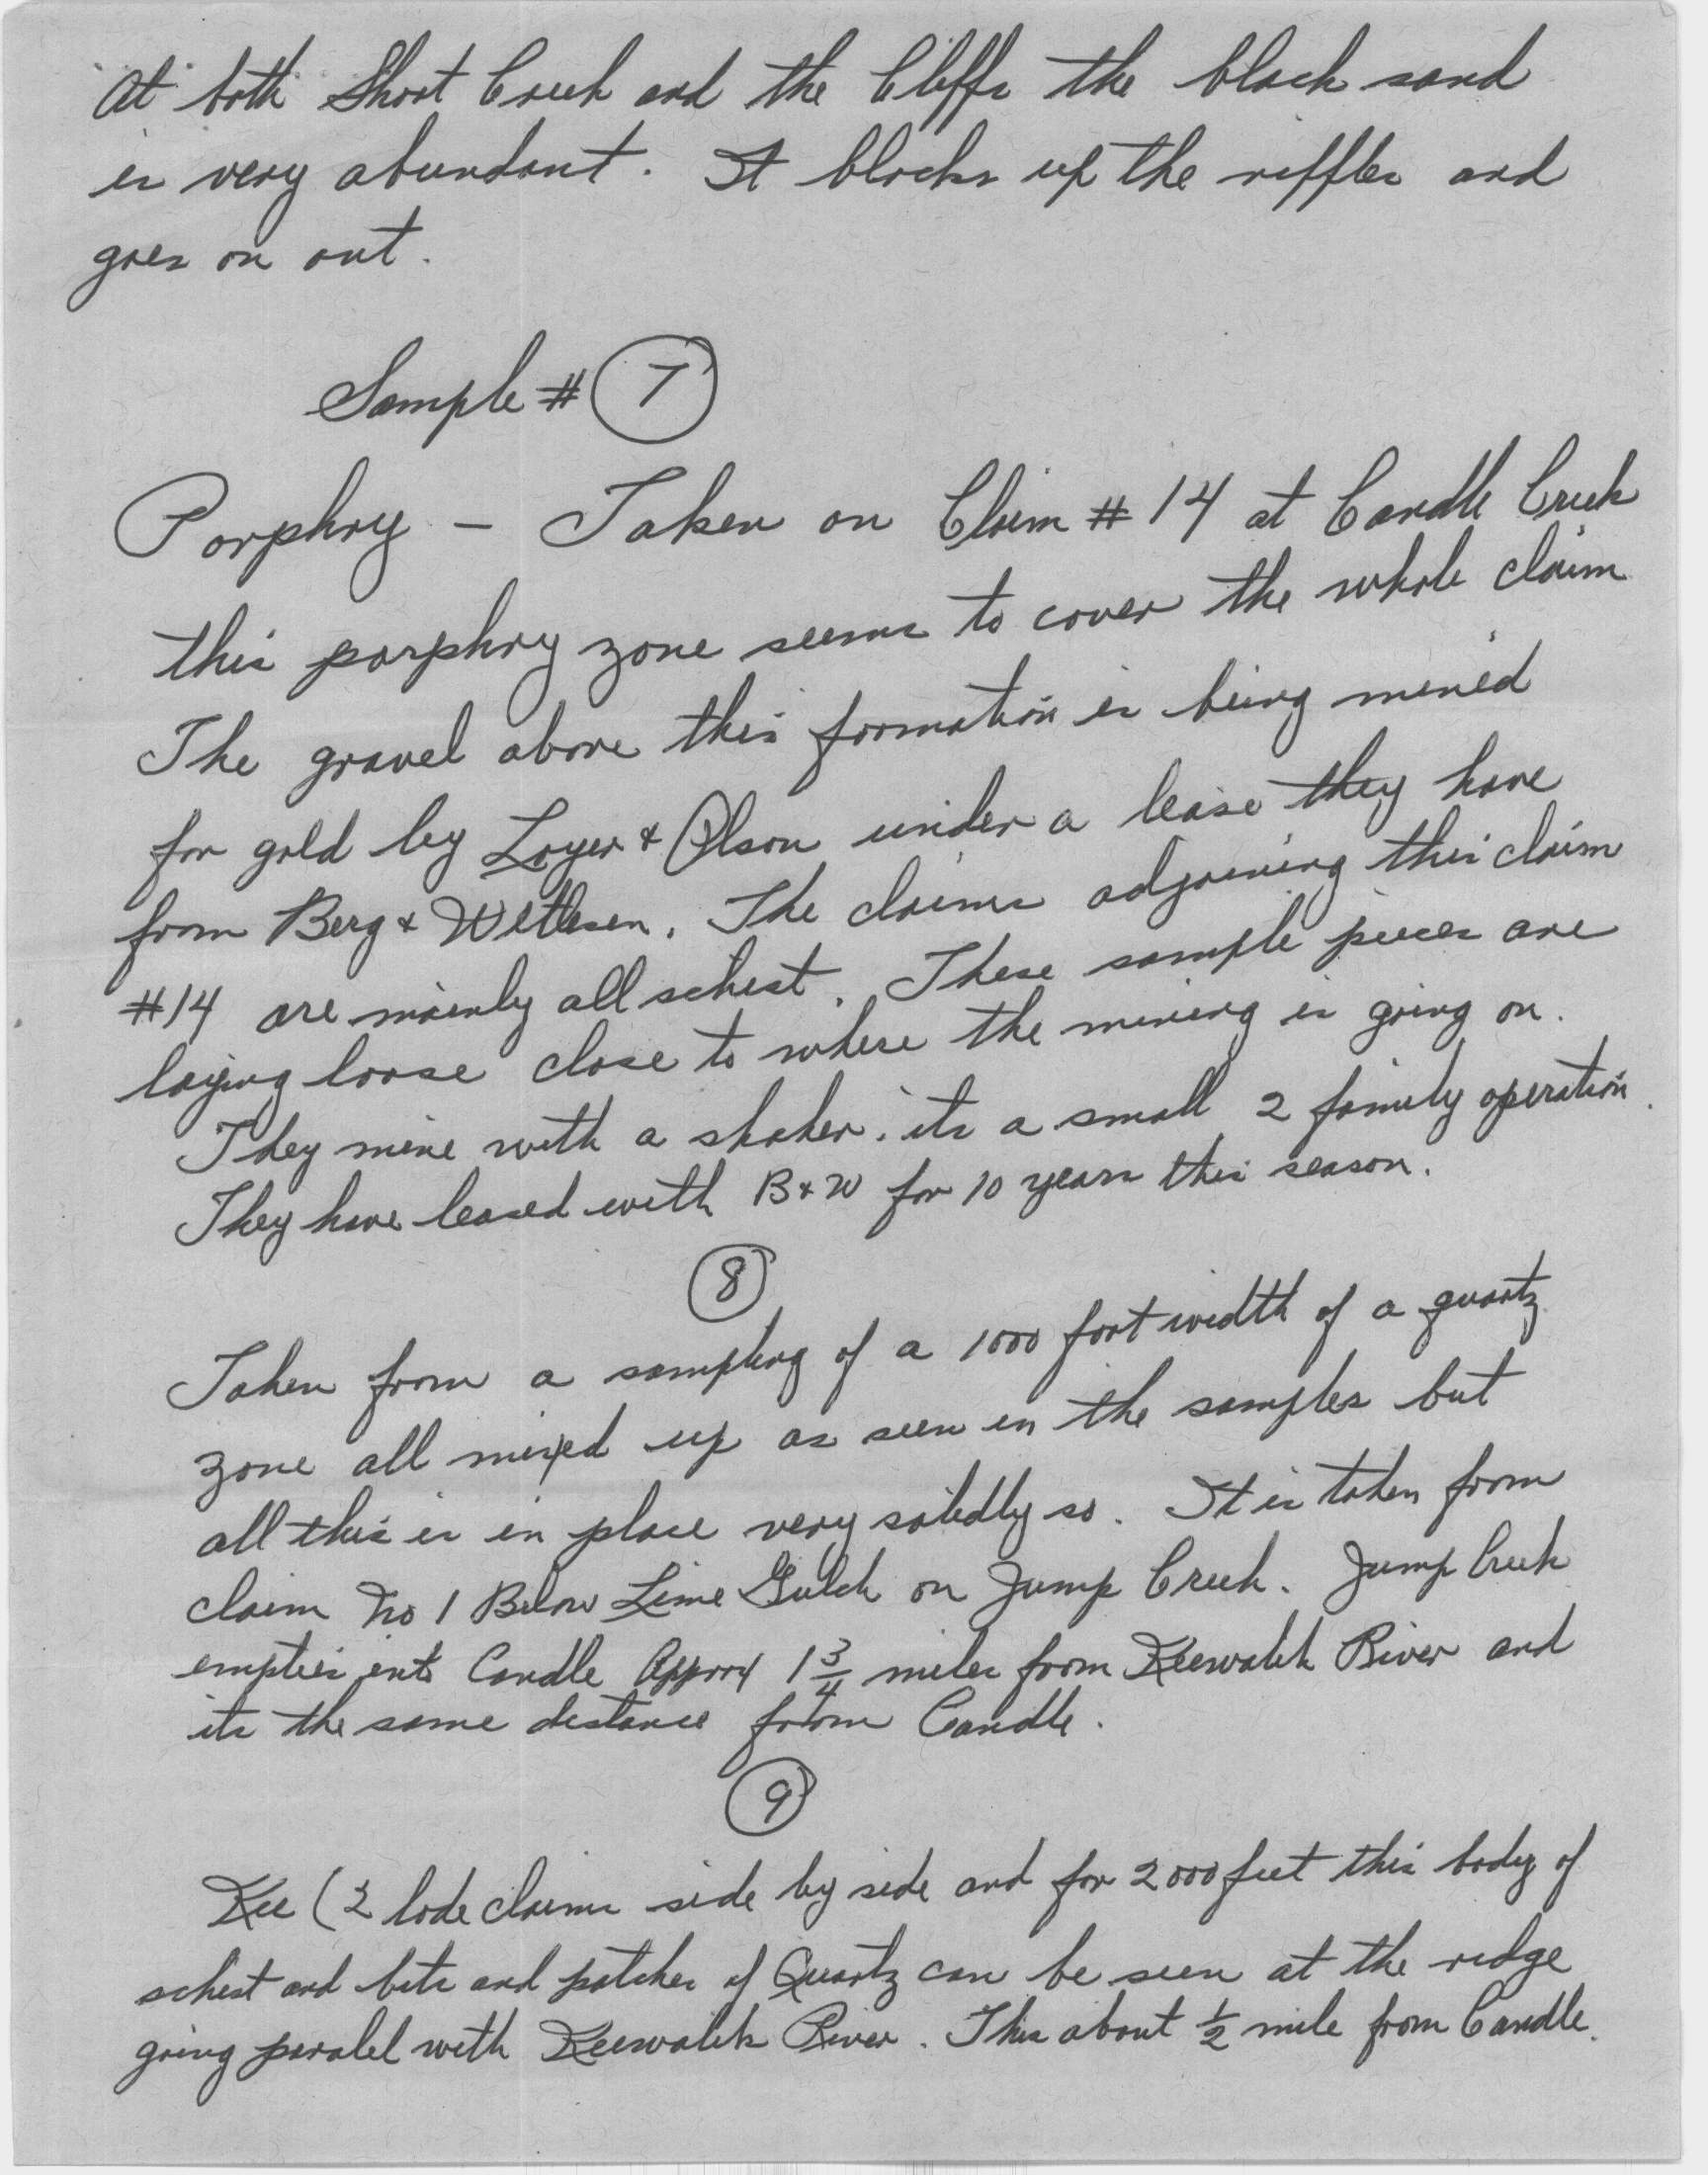 At both Short Creek and the Cliffs the black sand
is very abundant. It blocks up the riffles and
goes on out.
Sample # 7
Porphry - Taken on Claim # 14 at Candle Creek
this porphry zone seems to cover the whole claim
The gravel above this formation is being mined
for gold by Loyer & Olson under a lease they have
from Berg & Wetlesen. The claims adjoining this claim
#14 are mainly all schist. These sample pieces are
laying loose close to where the mining is going on.
They mine with a shaker. its a small 2 family operation.
They have leased with B & W for 10 years this season.
8
Taken from a sampling of a 1000 foot width of a quartz
zone all mixed up as seen in the samples but
all this is in place very solidly so. It is taken from
claim No 1 Below Lime Gulch on Jump Creek. Jump Creek
empties into Candle Approx 1 3/4 miles from Keewalik River and
its the same distance from Candle.
9
Kee (2 lode claims side by side and for 2000 feet this body of
schist and bits and patches of Quartz can be seen at the ridge
going paralel with Keewalik River. This about 1/2 mile from Candle.